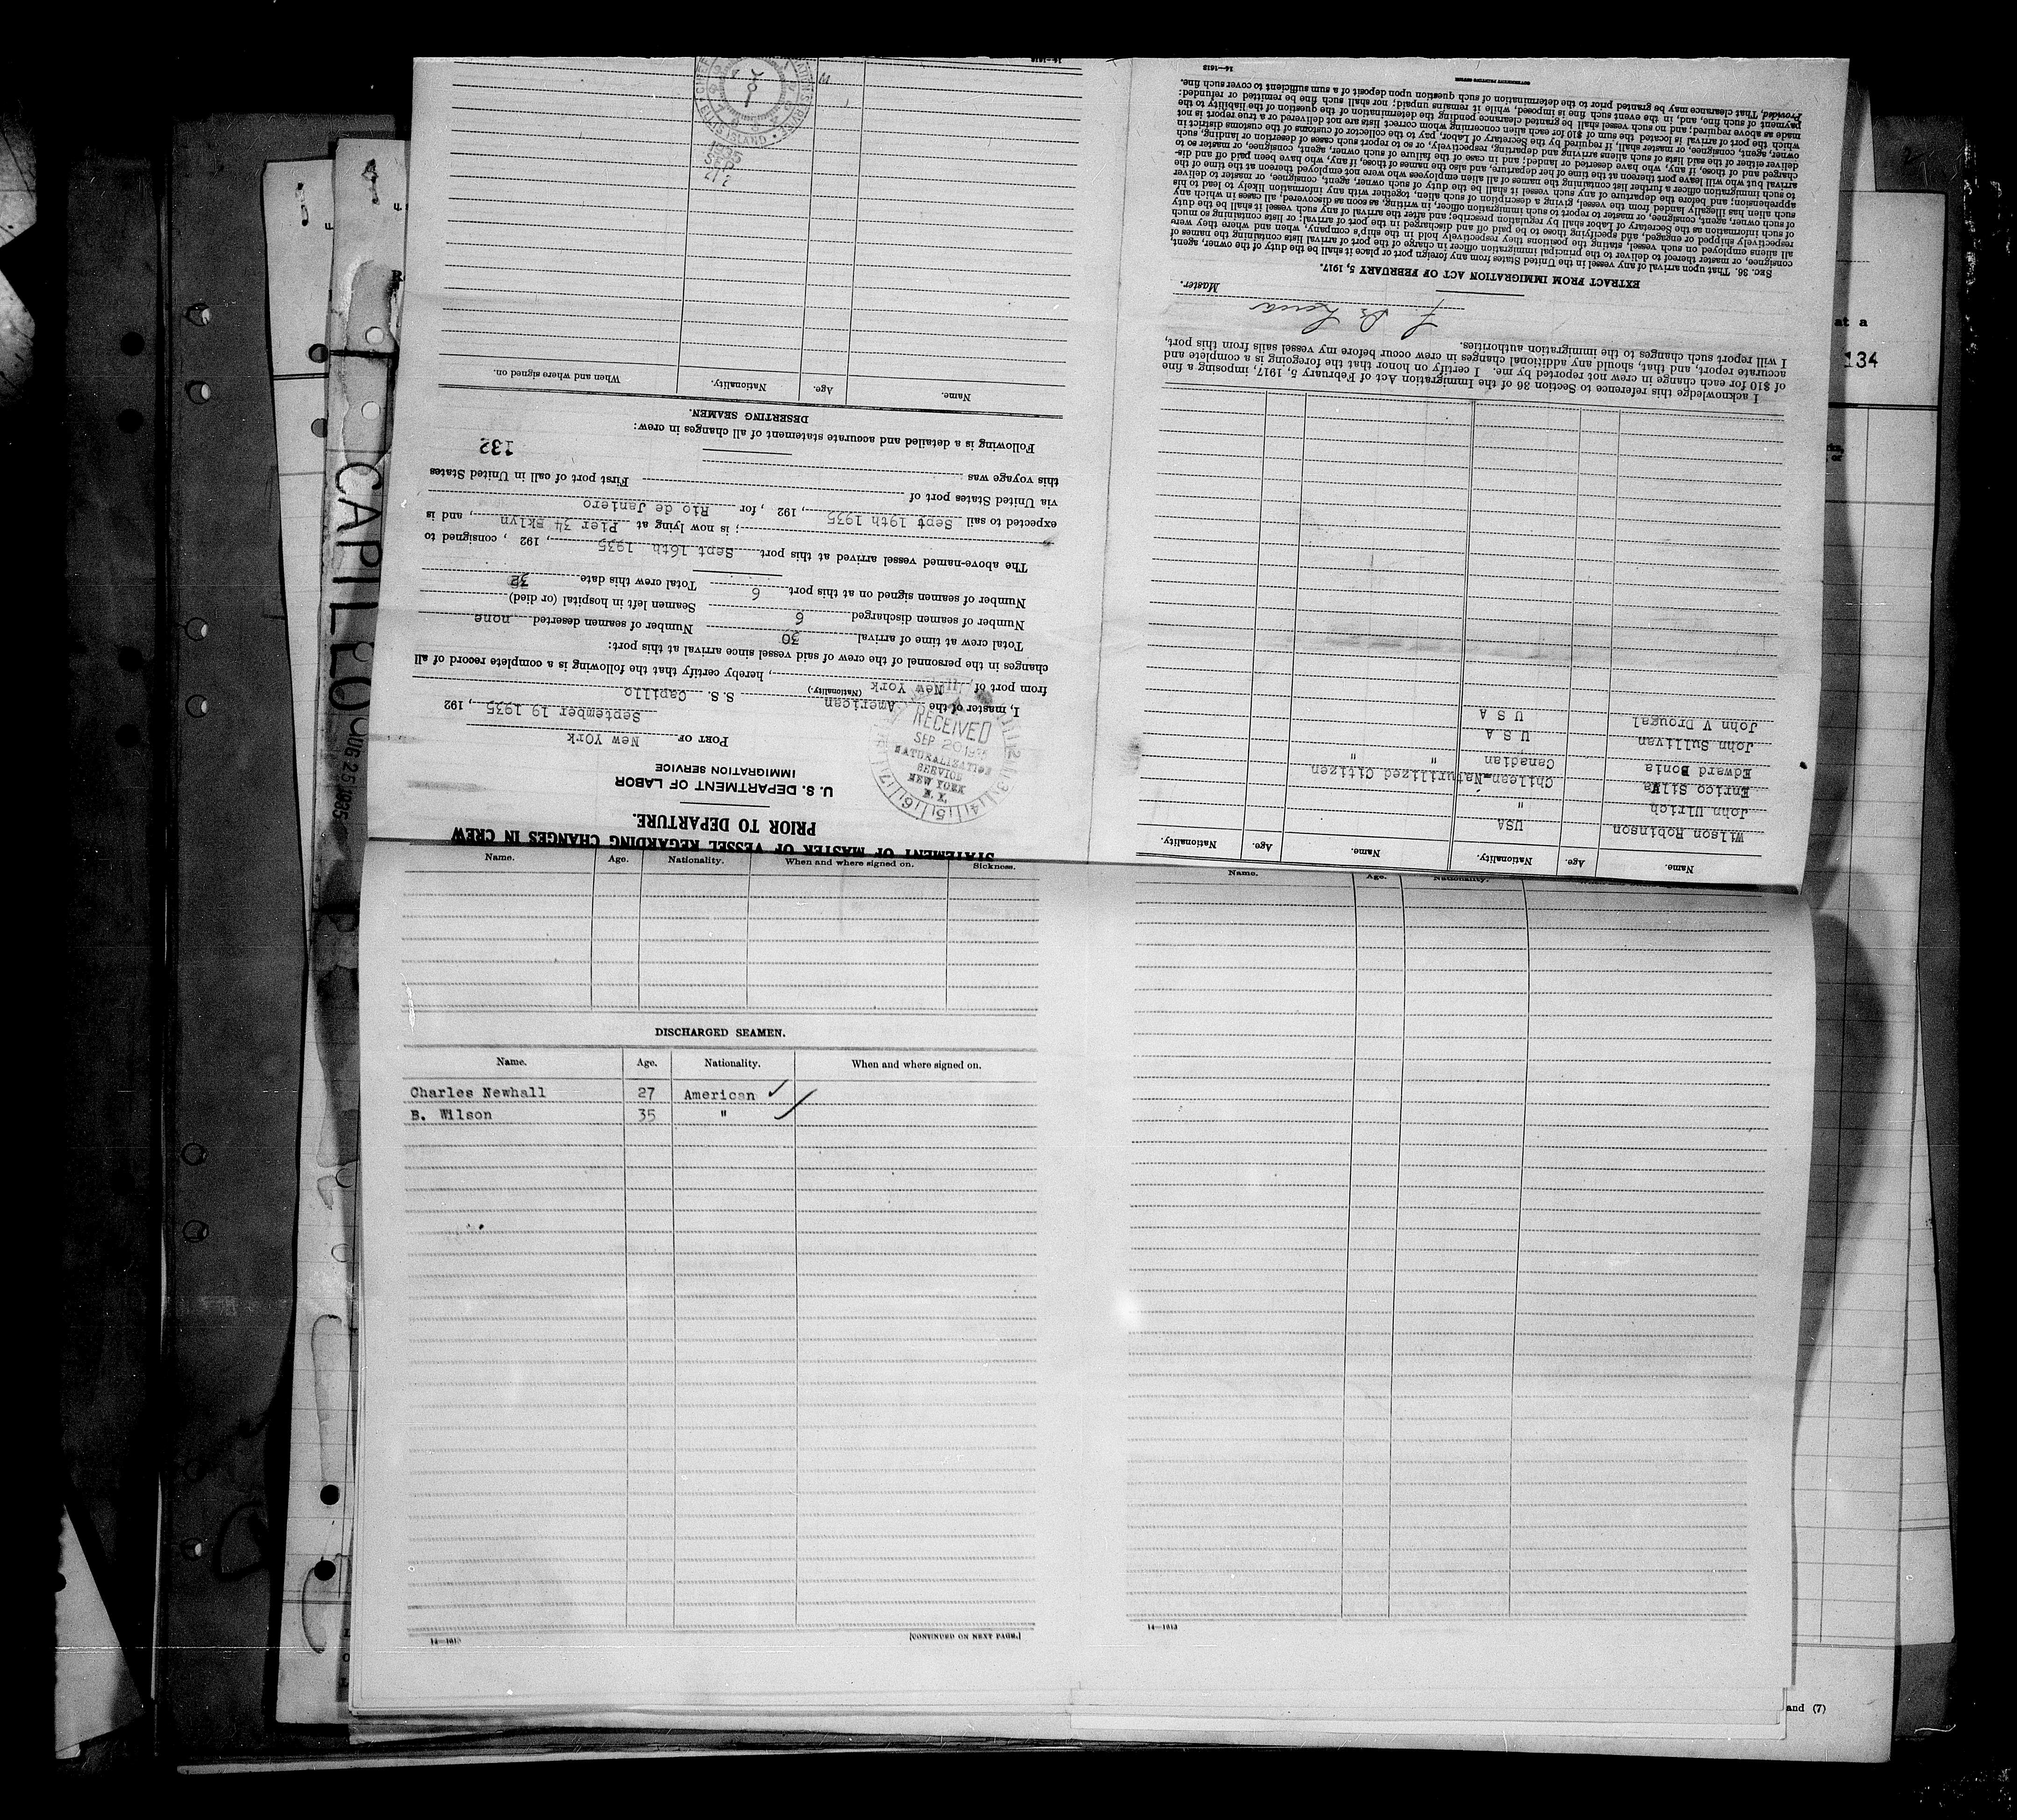 STATEMENT OF MASTER OF VESSEL REGARDING CHANGES IN CREW
PRIOR TO DEPARTURE.
U. S. DEPARTMENT OF LABOR
IMMIGRATION SERVICE
PORT OF New York
September 19 1935, 192
I, master of the American S. S. Capillo
(Nationality.)
from port of New York, hereby certify that the following is a complete record of all
changes in the personnel of the crew of said vessel since arrival at this port:
Total crew at time of arrival 30 Number of seamen deserted none
Number of seamen discharged 6 Seamen left in hospital (or died)
Number of seamen signed on at this port 6 Total crew this date
The above-named vessel arrived at this port Sept 16th 1935, 192 , consigned to
; is now lying at Pier 34 Bklyn, and is
expected to sail Sept 19th 1935, 192 , for Rio de Janiero
via United States port of
First port of call in United States
this voyage was
132
Following is a detailed and accurate statement of all changes in crew:
DESERTING SEAMEN.
Name. Age. Nationality. When and where signed on.
14—1613
RECEIVED
SEP 20 1935
NATURALIZATION
SERVICE
NEW YORK
N. Y.
Name. Age. Nationality. Name. Age. Nationality.
Wilson Robinson USA
John Ulrich "
Enrico Silva Chilean-Naturilized Citizen
Edward Bonia Canadian " "
John Sullivan U S A
John V Drougal U S A
I acknowledge this reference to Section 36 of the Immigration Act of February 5, 1917, imposing a fine
of $10 for each change in crew not reported by me. I certify on honor that the foregoing is a complete and
accurate report, and that, should any additional changes in crew occur before my vessel sails from this port,
I will report such changes to the immigration authorities.
Master.
EXTRACT FROM IMMIGRATION ACT OF FEBRUARY 5, 1917.
SEC. 36. That upon arrival of any vessel in the United States from any foreign port or place it shall be the duty of the owner, agent,
consignee, or master thereof to deliver to the principal immigration officer in charge of the port of arrival lists containing the names of
all aliens employed on such vessel, stating the positions they respectively hold in the ship's company, when and where they were
respectively shipped or engaged, and specifying those to be paid off and discharged in the port of arrival; or lists containing so much
of such information as the Secretary of Labor shall by regulation prescribe; and after the arrival of any such vessel it shall be the duty
of such owner, agent, consignee, or master to report to such immigration officer, in writing, as soon as discovered, all cases in which any
such alien has illegally landed from the vessel, giving a description of such alien, together with any information likely to lead to his
apprehension; and before the departure of any such vessel it shall be the duty of such owner, agent, consignee, or master to deliver
to such immigration officer a further list containing the names of all alien employees who were not employed thereon at the time of the
arrival but who will leave port thereon at the time of her departure, and also the names of those, if any, who have been paid off and dis-
charged and of those, if any, who have deserted or landed; and in case of the failure of such owner, agent, consignee, or master so to
deliver either of the said lists of such aliens arriving and departing, respectively, or so to report such cases of desertion or landing, such
owner, agent, consignee, or master, shall, if required by the Secretary of Labor, pay to the collector of customs of the customs district in
which the port of arrival is located the sum of $10 for each alien concerning whom correct lists are not delivered or a true report is not
made as above required; and no such vessel shall be granted clearance pending the determination of the question of the liability to the
payment of such fine, and, in the event such fine is imposed, while it remains unpaid; nor shall such fine be remitted or refunded:
Provided, That clearance may be granted prior to the determination of such question upon deposit of a sum sufficient to cover such fine.
14—1613
GOVERNMENT PRINTING OFFICE
Name. Age. Nationality. When and where signed on. Sickness.
DISCHARGED SEAMEN.
Name. Age. Nationality. When and where signed on.
Charles Newhall 27 American
B. Wilson 35 "
14—1613
[CONTINUED ON NEXT PAGE.]
Name. Age. Nationality.
14—1613
CAPILLO
AUG 25 1935
at a
134
and (7)